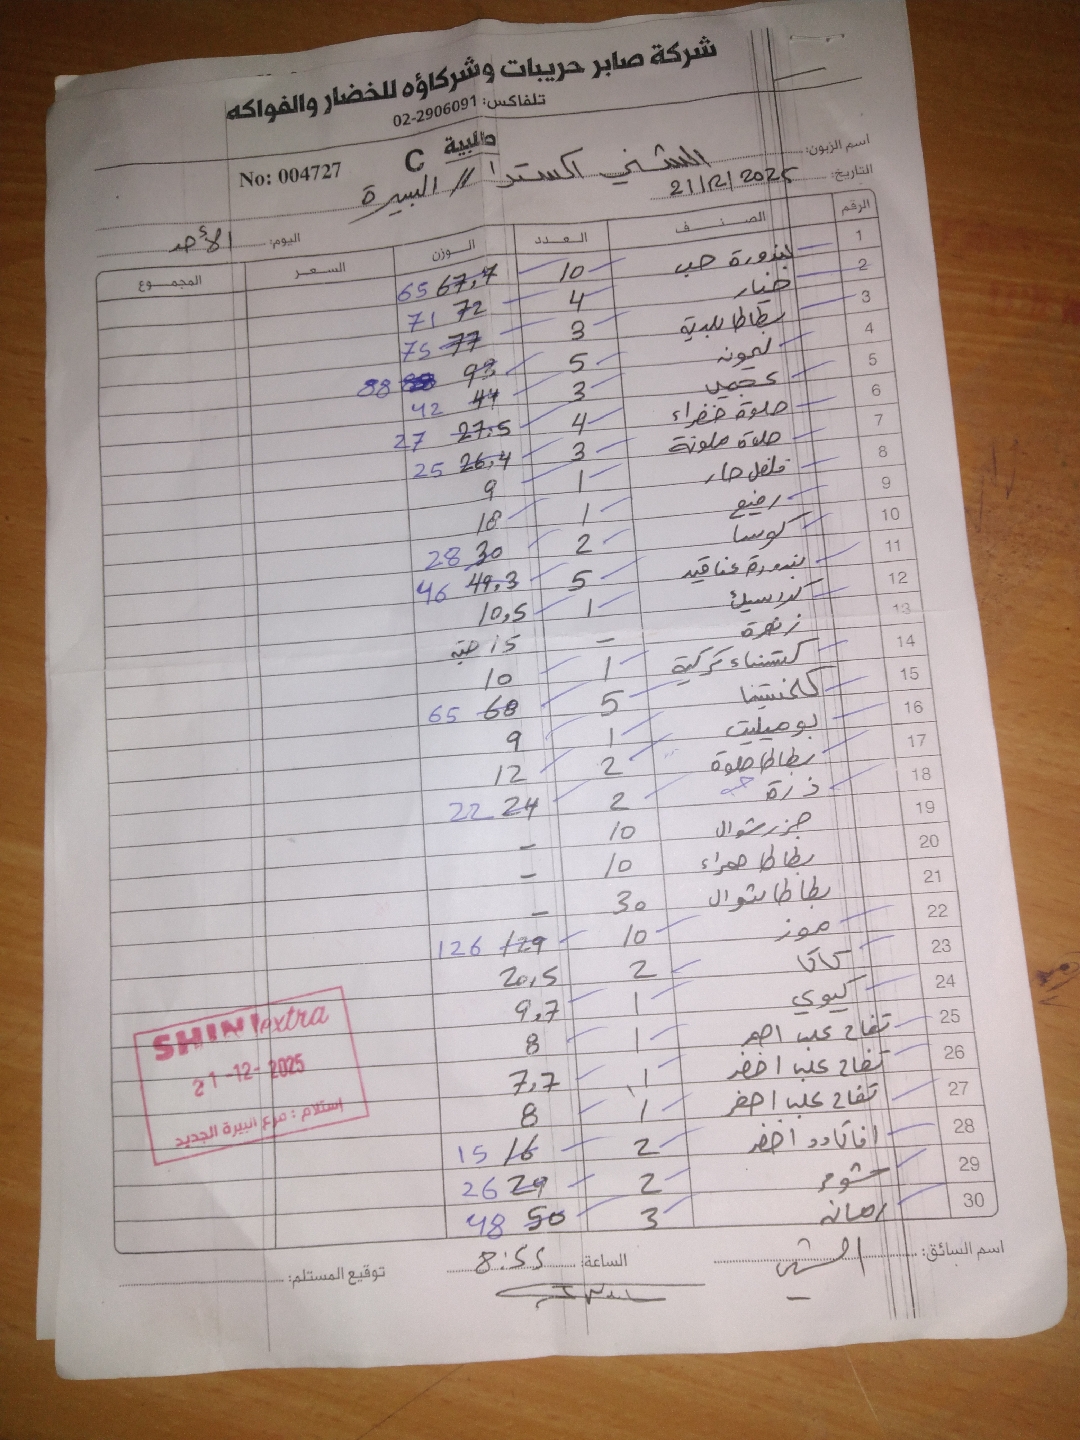 شركة صابر حريبات وشركاؤه للخضار والفواكه
تلفاكس: 02-2906091
طلبية C
No: 004727
اسم الزبون: الشني اكسترا // البيرة
التاريخ: 21/12/2025
اليوم: الأحد
الرقم الصنف العدد الوزن السعر المجموع
1 بندورة حب 10 67,7 65
2 خيار 4 72 71
3 بطاطا بلدية 3 77 75
4 ليمونه 5 93 88
5 عجمي 3 44 42
6 حلوة خضراء 4 27,5 27
7 حلوة ملونة 3 26,4 25
8 فلفل حار 1 9
9 رفيع 1 18
10 كوسا 2 30 28
11 بندورة عناقيد 5 49,3 46
12 1 10,5
13 زهرة - 15 حبه
14 كستناء تركية 1 10
15 كلمنتينا 5 68 65
16 بوميليت 1 9
17 بطاطا حلوة 2 12
18 ذرة 2 24 22
19 جزر شوال 10 -
20 بطاطا حمراء 10 -
21 بطاطا شوال 30 -
22 موز 10 129 126
23 كاكا 2 20,5
24 كيوي 1 9,7
25 تفاح علب احمر 1 8
26 تفاح علب اخضر 1 7,7
27 تفاح علب 1 8
28 افاكادو اخضر 2 16 15
29 ثوم 2 29 26
30 رمانه 3 50 48
SHINI extra
21-12-2025
استلام : فرع البيرة الجديد
اسم السائق:
الساعة: 8:55
توقيع المستلم: